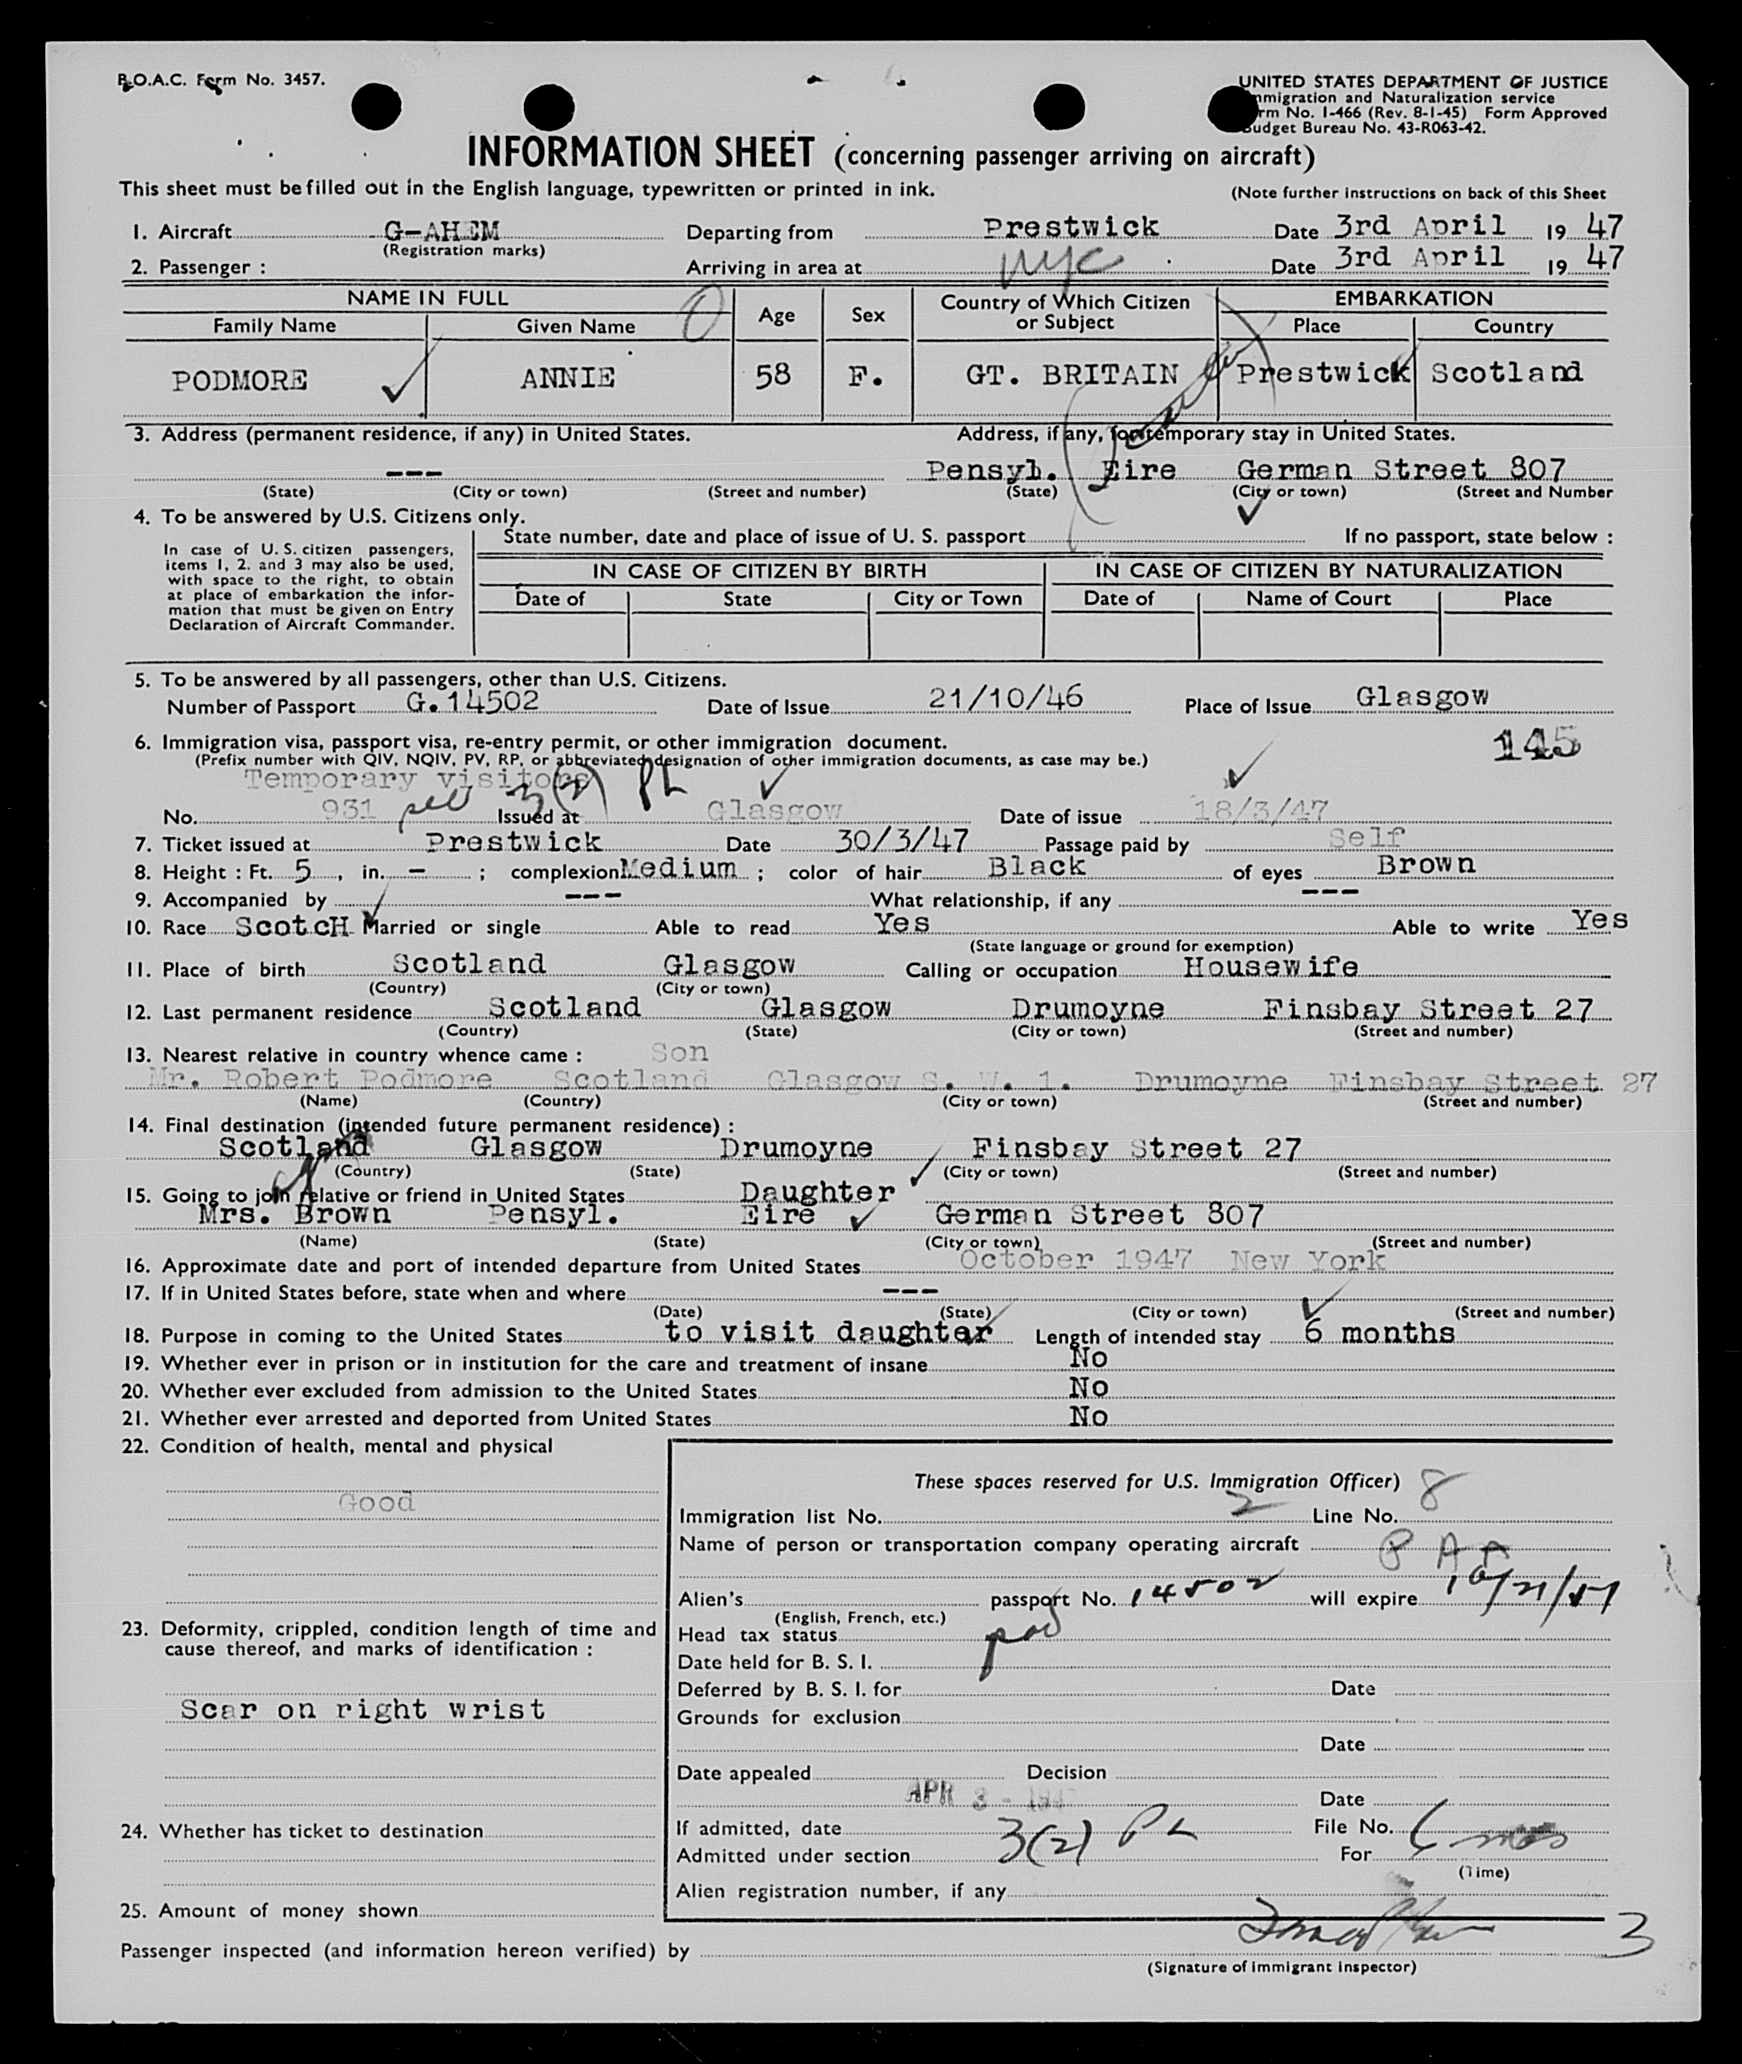 B.O.A.C. Form No. 3457.
UNITED STATES DEPARTMENT OF JUSTICE
Immigration and Naturalization service
Form No. I-466 (Rev. 8-1-45) Form Approved
Budget Bureau No. 43-R063-42.
INFORMATION SHEET (concerning passenger arriving on aircraft)
This sheet must be filled out in the English language, typewritten or printed in ink. (Note further instructions on back of this Sheet
1. Aircraft G-AHEM Departing from Prestwick Date 3rd April 19 47
(Registration marks)
2. Passenger : Arriving in area at NYC Date 3rd April 19 47
NAME IN FULL Age Sex Country of Which Citizen or Subject EMBARKATION
Family Name Given Name Place Country
PODMORE ANNIE 58 F. GT. BRITAIN Prestwick Scotland
3. Address (permanent residence, if any) in United States. Address, if any, for temporary stay in United States.
--- Pensyl. Eire German Street 807
(State) (City or town) (Street and number) (State) (City or town) (Street and Number
4. To be answered by U.S. Citizens only.
In case of U.S. citizen passengers,
items 1, 2. and 3 may also be used,
with space to the right, to obtain
at place of embarkation the infor-
mation that must be given on Entry
Declaration of Aircraft Commander.
State number, date and place of issue of U. S. passport If no passport, state below :
IN CASE OF CITIZEN BY BIRTH IN CASE OF CITIZEN BY NATURALIZATION
Date of State City or Town Date of Name of Court Place
5. To be answered by all passengers, other than U.S. Citizens.
Number of Passport G.14502 Date of Issue 21/10/46 Place of Issue Glasgow
6. Immigration visa, passport visa, re-entry permit, or other immigration document. 145
(Prefix number with QIV, NQIV, PV, RP, or abbreviated designation of other immigration documents, as case may be.)
Temporary visitors 3(2) PL
No. 931 Issued at Glasgow Date of issue 18/3/47
7. Ticket issued at Prestwick Date 30/3/47 Passage paid by Self
8. Height : Ft. 5 , in. - ; complexion Medium ; color of hair Black of eyes Brown
9. Accompanied by --- What relationship, if any ---
10. Race ScotcH Married or single Able to read Yes Able to write Yes
(State language or ground for exemption)
11. Place of birth Scotland Glasgow Calling or occupation Housewife
(Country) (City or town)
12. Last permanent residence Scotland Glasgow Drumoyne Finsbay Street 27
(Country) (State) (City or town) (Street and number)
13. Nearest relative in country whence came : Son
Mr. Robert Podmore Scotland Glasgow S. W. 1. Drumoyne Finsbay Street 27
(Name) (Country) (City or town) (Street and number)
14. Final destination (intended future permanent residence) :
Scotland Glasgow Drumoyne Finsbay Street 27
(Country) (State) (City or town) (Street and number)
15. Going to join relative or friend in United States Daughter
Mrs. Brown Pensyl. Eire German Street 807
(Name) (State) (City or town) (Street and number)
16. Approximate date and port of intended departure from United States October 1947 New York
17. If in United States before, state when and where ---
(Date) (State) (City or town) (Street and number)
18. Purpose in coming to the United States to visit daughter Length of intended stay 6 months
19. Whether ever in prison or in institution for the care and treatment of insane No
20. Whether ever excluded from admission to the United States No
21. Whether ever arrested and deported from United States No
22. Condition of health, mental and physical
Good
23. Deformity, crippled, condition length of time and
cause thereof, and marks of identification :
Scar on right wrist
24. Whether has ticket to destination
25. Amount of money shown
These spaces reserved for U.S. Immigration Officer)
Immigration list No. 2 Line No. 8
Name of person or transportation company operating aircraft
Alien's passport No. 14502 will expire 10/21/51
(English, French, etc.)
Head tax status
Date held for B. S. I.
Deferred by B. S. I. for Date
Grounds for exclusion
Date
Date appealed Decision
APR 3 - 194 Date
If admitted, date File No.
Admitted under section 3(2) PL For 6 mos
(Time)
Alien registration number, if any
Passenger inspected (and information hereon verified) by 3
(Signature of immigrant inspector)